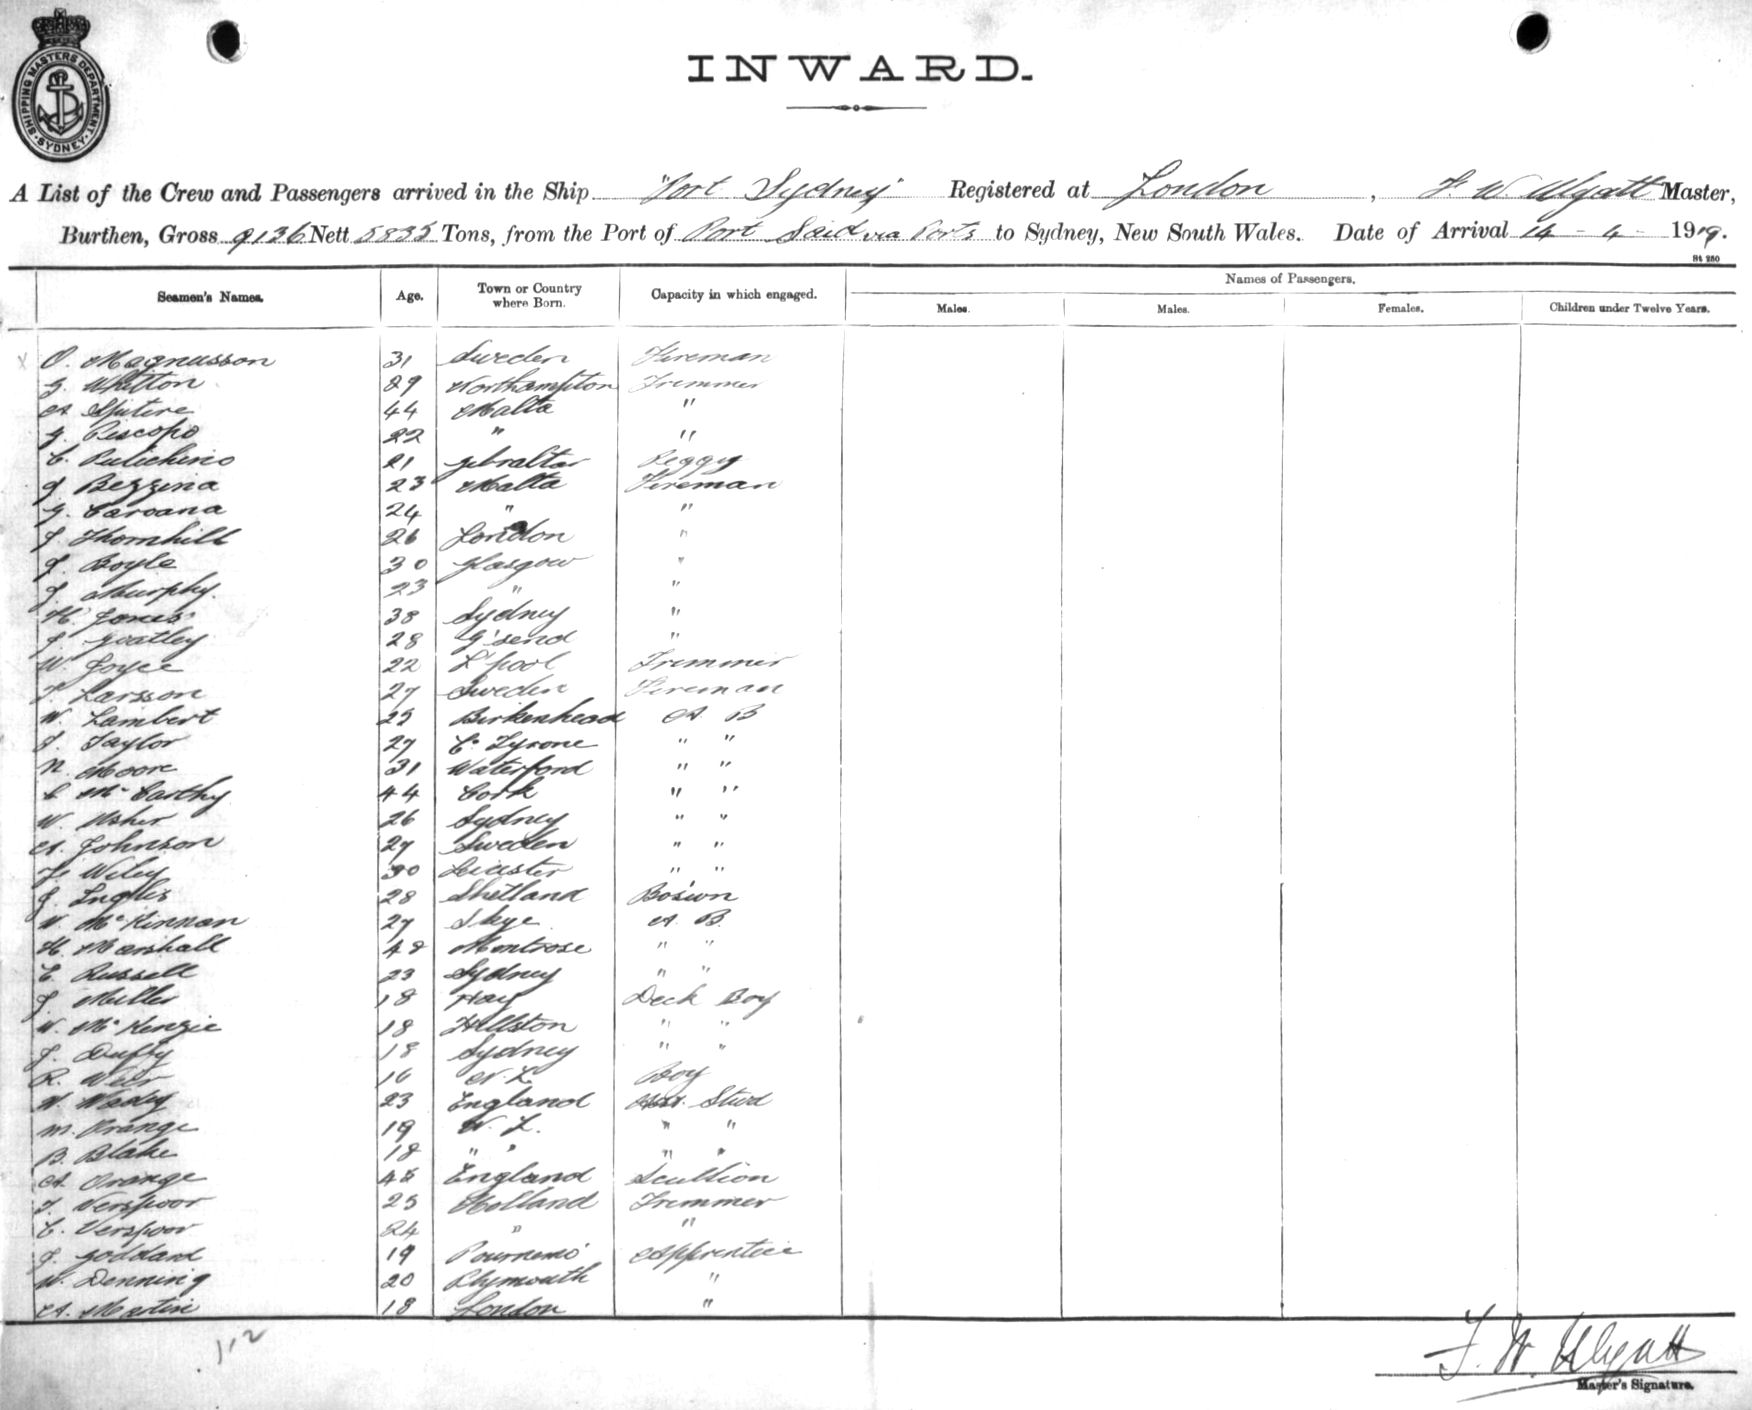 SHIPPING MASTERS DEPARTMENT. SYDNEY
INWARD.
A List of the Crew and Passengers arrived in the Ship "Port Sydney" Registered at London, F. W. Wyatt Master,
Burthen, Gross 9136 Nett 5835 Tons, from the Port of Port Said via Ports to Sydney, New South Wales. Date of Arrival 14 - 4 - 1919.
St 280
Seamen's Names. Age. Town or Country where Born. Capacity in which engaged. Names of Passengers.
Males. Males. Females. Children under Twelve Years.
O. Magnusson 31 Sweden Fireman
G. Whitton 29 Northampton Trimmer
A. Spiteri 44 Malta "
G. Piscopo 22 " "
C. 21 Gibraltar Peggy
J. Bezzina 23 Malta Fireman
G. Caroana 24 " "
J. Thornhill 26 London "
J. Boyle 30 Glasgow "
J. Murphy. 23 " "
H. Jones 38 Sydney "
J. Goatley 28 G'send "
W. Joyce 22 L'pool Trimmer
T. Larsson 27 Sweden Fireman
W. Lambert 25 Birkenhead A. B
J. Taylor 27 Co Tyrone " "
N. Moore 31 Waterford " "
C McCarthy 44 Cork " "
W. Usher 26 Sydney " "
A. Johnson 27 Sweden " "
F. Wiley 30 Leicester " "
J. Inglis 28 Shetland Bos'wn
N. McKinnan 27 Skye A. B.
H. Marshall 48 Montrose " "
E Russell 23 Sydney " "
J Muller 18 Hay Deck Boy
W. McKenzie 18 Hillston " "
J. Duffy 18 Sydney " "
R. Weir 16 N. Z. Boy
W. 23 England Stwd
M. Orange 19 N. Z. " "
B. Blake 18 " " " "
A. Orange 45 England Scullion
T. Verspoor 25 Holland Trimmer
C. Verspoor 24 " "
J. Goddard 19 Apprentice
W. Denning 20 Plymouth "
A. Martin 18 London "
112
F. W. Wyatt
Master's Signature.